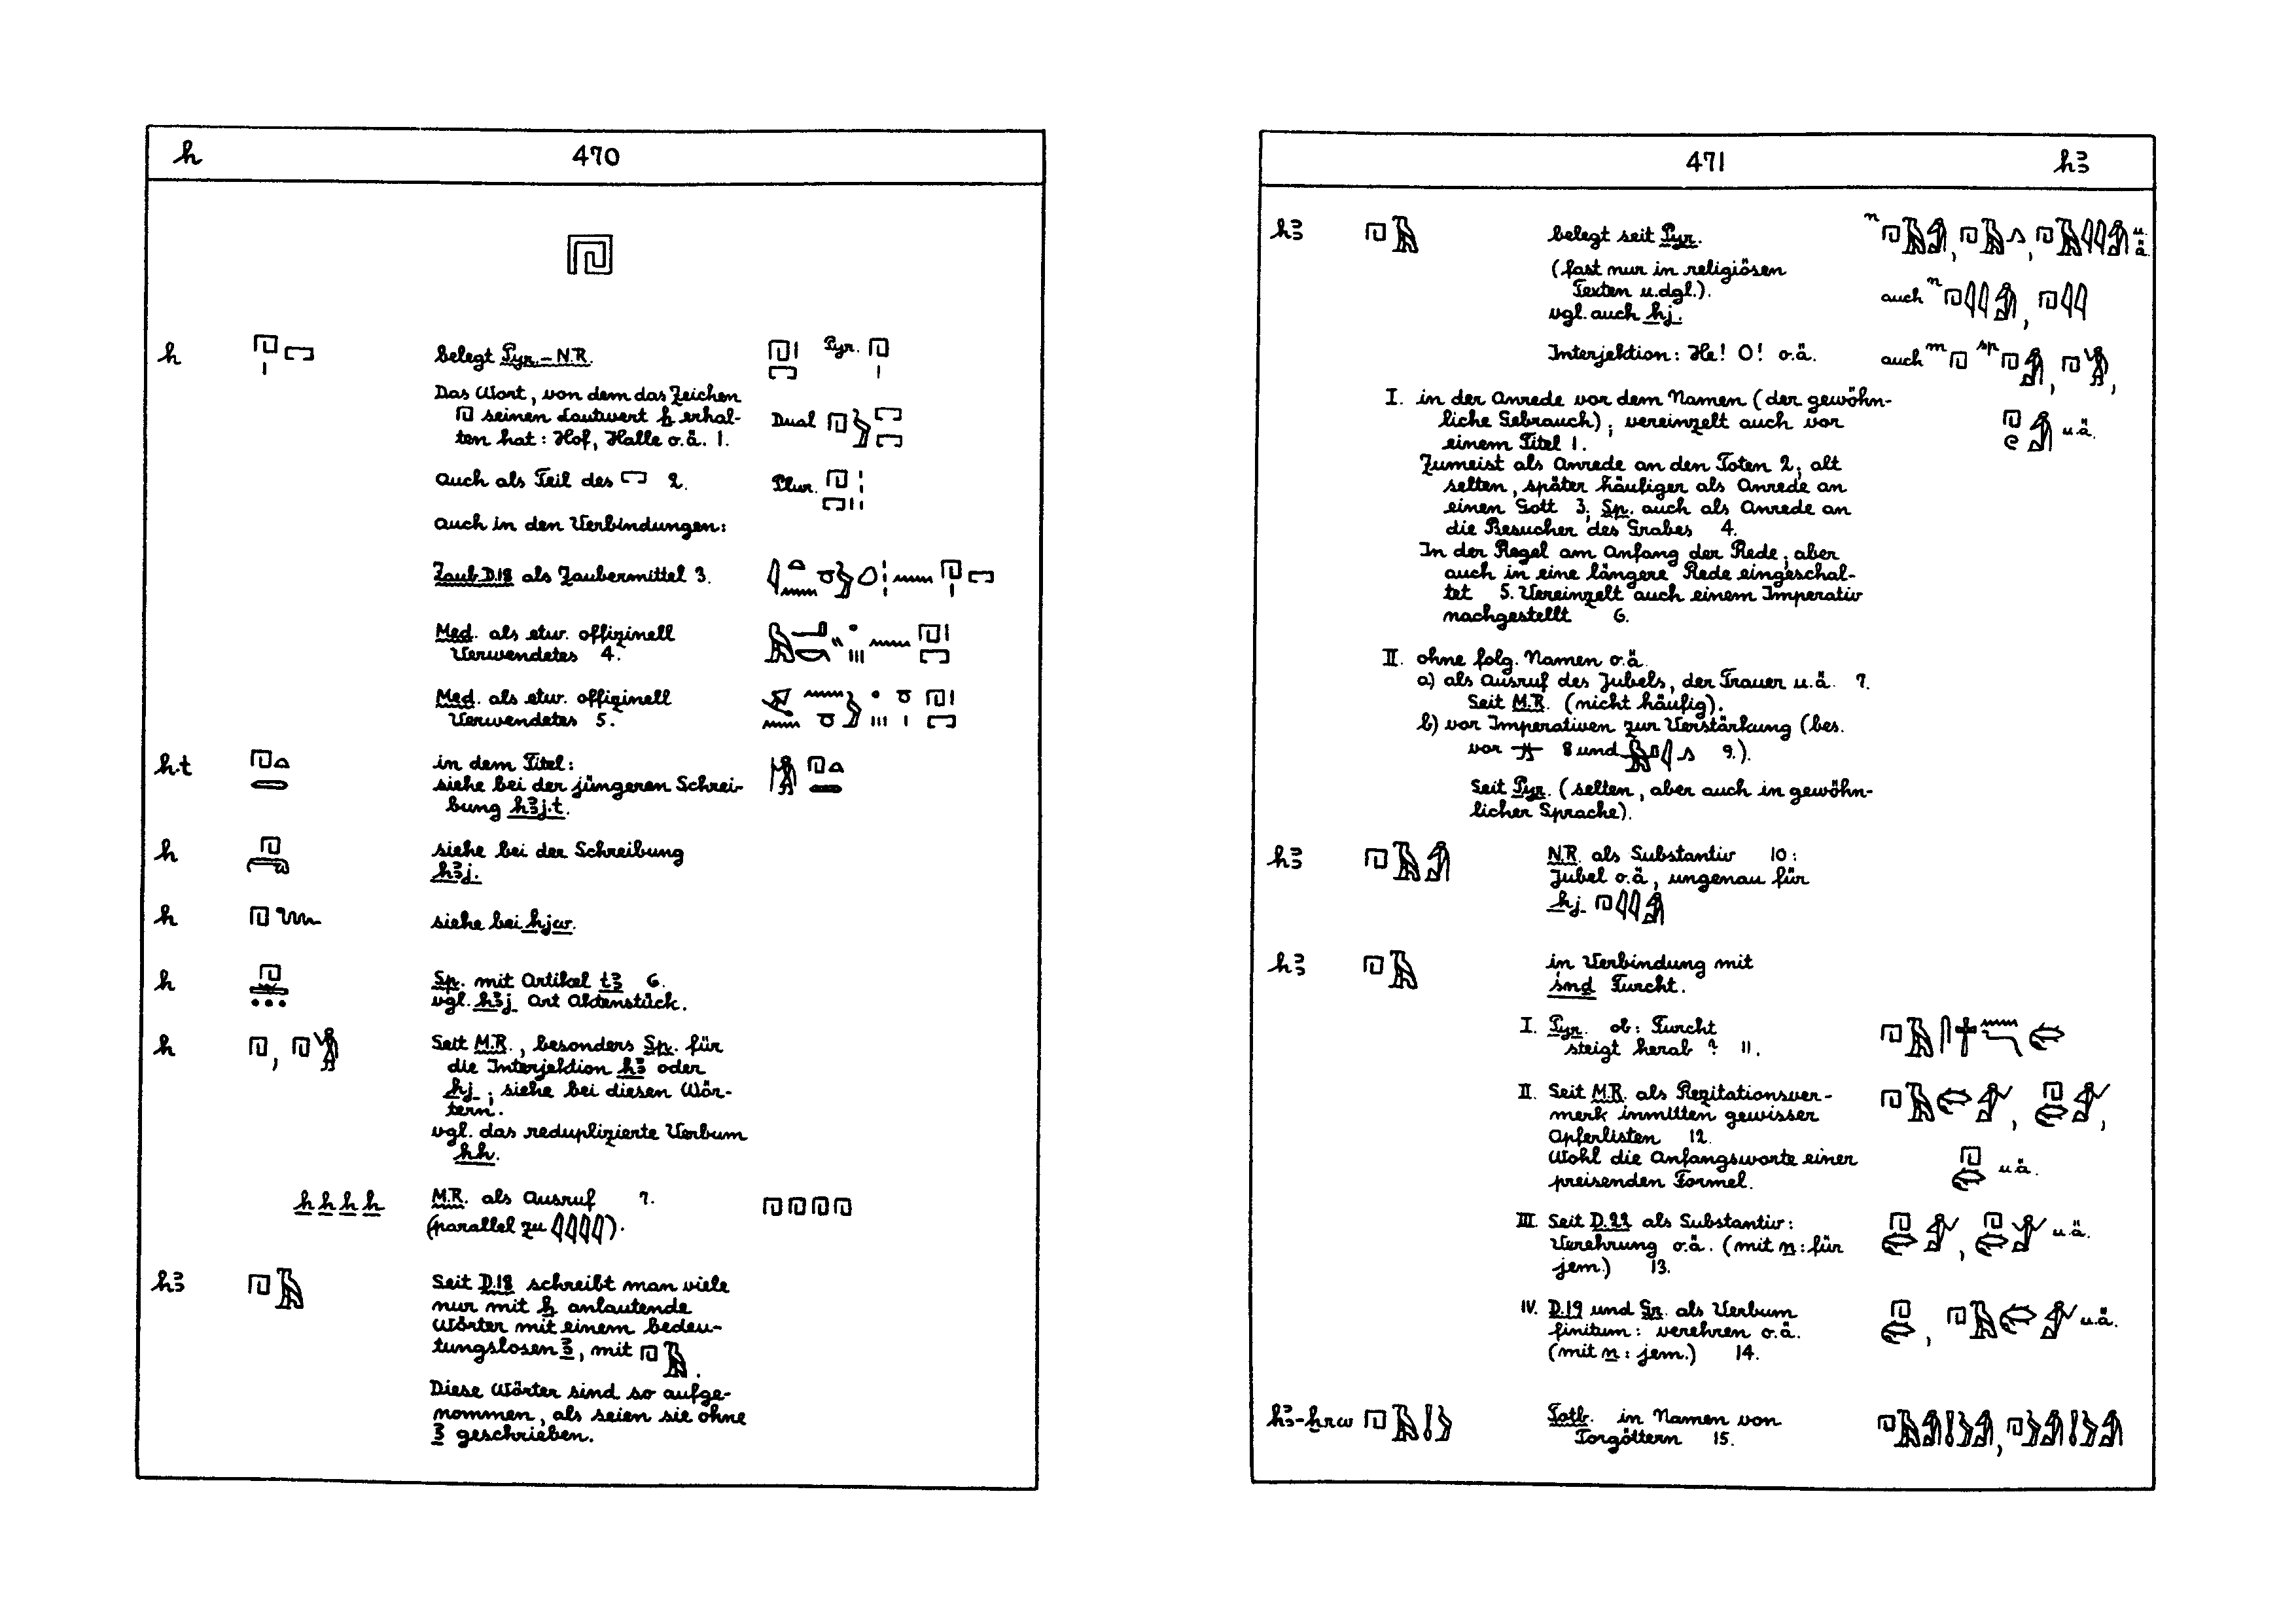 h 470
𓉔
h 𓉔𓏤𓉐 belegt Pyr.-N.R. 𓉔𓏤𓉐 Pyr. 𓉔𓏤
Das Wort, von dem das Zeichen
𓉔 seinen Lautwert h erhal- Dual 𓉔𓅱𓉐𓉐
ten hat: Hof, Halle o.ä. 1.
auch als Teil des 𓉐 2. Plur.
auch in den Verbindungen:
Zaub.D.18 als Zaubermittel 3.
Med. als etw. offizinell
Verwendetes 4.
Med. als etw. offizinell
Verwendetes 5.
h.t 𓉔𓏏 in dem Titel:
siehe bei der jüngeren Schrei-
bung hꜣj.t.
h 𓉔 siehe bei der Schreibung
hꜣj.
h 𓉔 siehe bei hjw.
h 𓉔 Sp. mit Artikel tꜣ 6.
vgl. hꜣj Art Aktenstück.
h 𓉔, 𓉔𓀁 Seit M.R., besonders Sp. für
die Interjektion hꜣ oder
hj; siehe bei diesen Wör-
tern.
vgl. das reduplizierte Verbum
hh.
h h h h M.R. als Ausruf 7. 𓉔𓉔𓉔𓉔
(parallel zu 𓇋𓇋𓇋𓇋).
hꜣ 𓉔𓄿 Seit D.18 schreibt man viele
nur mit h anlautende
Wörter mit einem bedeu-
tungslosen ꜣ, mit 𓉔𓄿.
Diese Wörter sind so aufge-
nommen, als seien sie ohne
ꜣ geschrieben.
471 hꜣ
hꜣ 𓉔𓄿 belegt seit Pyr. n 𓉔𓄿𓀁, 𓉔𓄿𓂻, 𓉔𓄿𓇋𓇋𓀁 u.ä.
(fast nur in religiösen
Texten u.dgl.). auch n 𓉔𓇋𓇋𓀁, 𓉔𓇋𓇋
vgl. auch hj.
Interjektion: He! O! o.ä. auch m 𓉔 sp 𓉔𓀁, 𓉔𓀁,
I. in der Anrede vor dem Namen (der gewöhn-
liche Gebrauch); vereinzelt auch vor 𓉔𓏲𓀁 u.ä.
einem Titel 1.
Zumeist als Anrede an den Toten 2; alt
selten, später häufiger als Anrede an
einen Gott 3; Sp. auch als Anrede an
die Besucher des Grabes 4.
In der Regel am Anfang der Rede; aber
auch in eine längere Rede eingeschal-
tet 5. Vereinzelt auch einem Imperativ
nachgestellt 6.
II. ohne folg. Namen o.ä.
a) als Ausruf des Jubels, der Trauer u.ä. 7.
Seit M.R. (nicht häufig).
b) vor Imperativen zur Verstärkung (bes.
vor 8 und 9.).
Seit Pyr. (selten, aber auch in gewöhn-
licher Sprache).
hꜣ 𓉔𓄿𓀁 N.R. als Substantiv 10:
Jubel o.ä., ungenau für
hj 𓉔𓇋𓇋𓀁
hꜣ 𓉔𓄿 in Verbindung mit
śnḏ Furcht.
I. Pyr. ob: Furcht
steigt herab? 11.
II. Seit M.R. als Rezitationsver-
merk inmitten gewisser
Opferlisten 12.
Wohl die Anfangsworte einer
preisenden Formel. u.ä.
III. Seit D.22 als Substantiv:
Verehrung o.ä. (mit n: für u.ä.
jem.) 13.
IV. D.19 und Gr. als Verbum
finitum: verehren o.ä. u.ä.
(mit n: jem.) 14.
hꜣ-hrw Totb. in Namen von
Torgöttern 15.